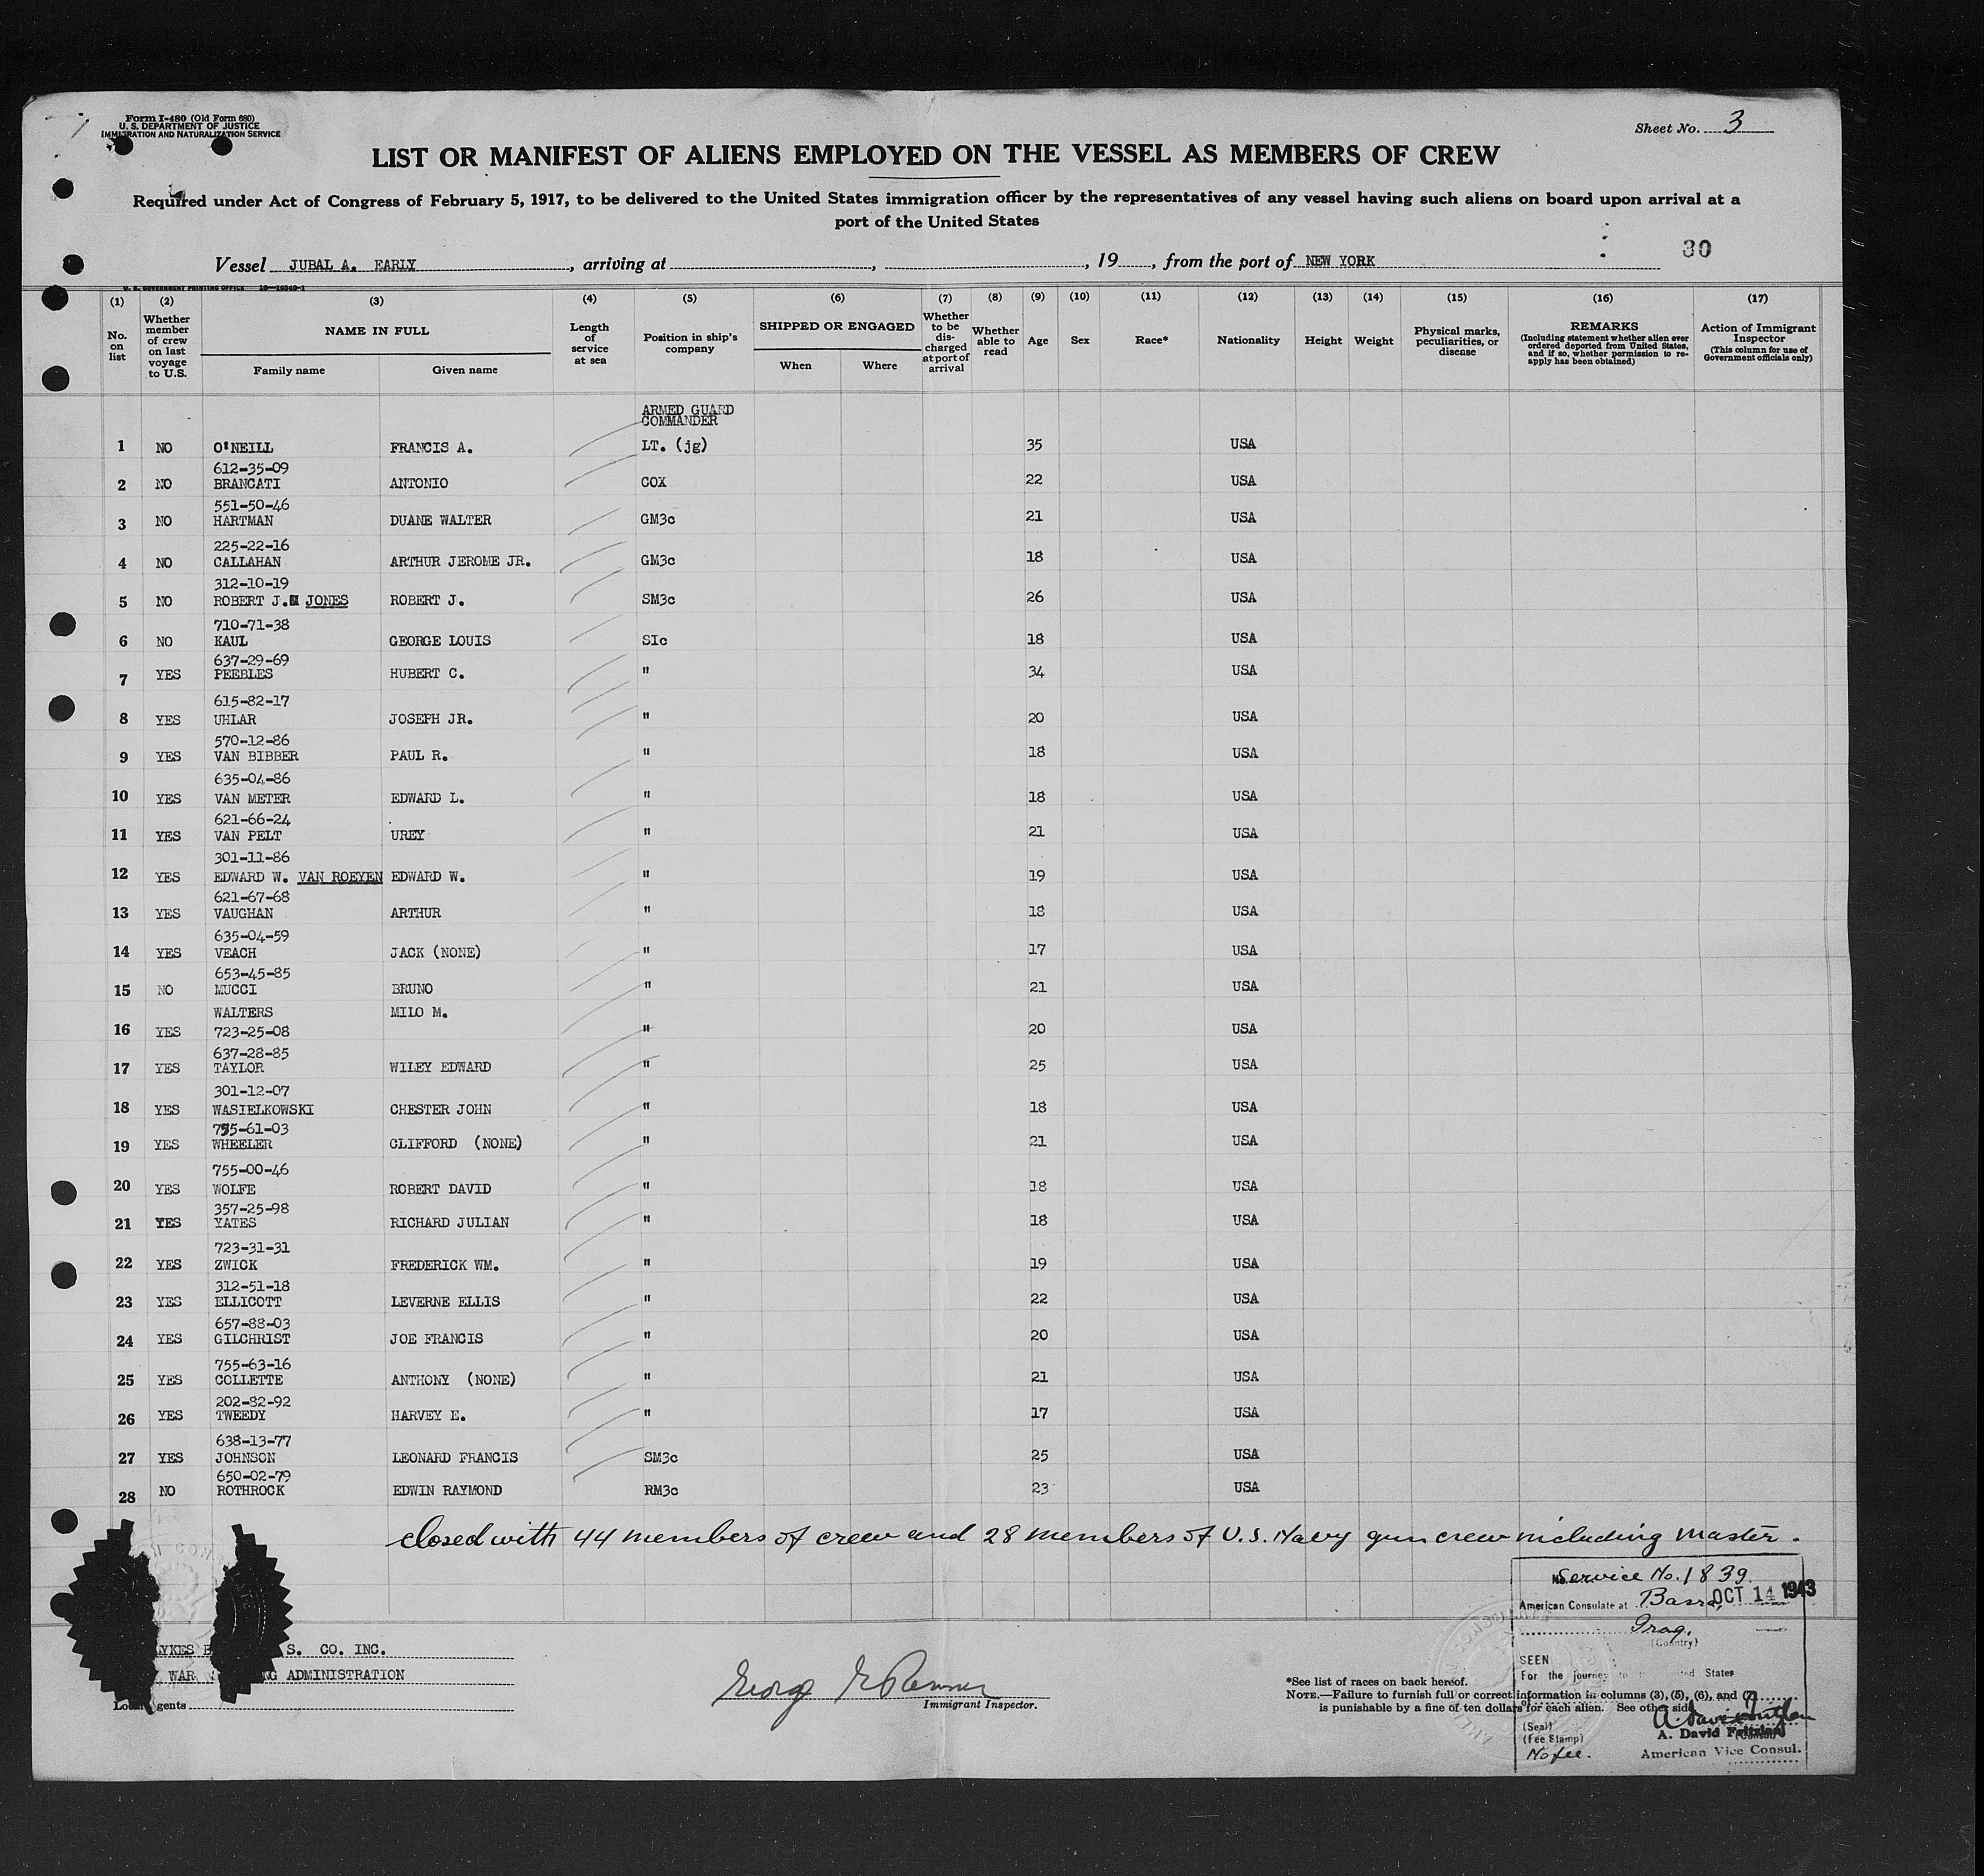 Form I-480 (Old Form 680)
U. S. DEPARTMENT OF JUSTICE
IMMIGRATION AND NATURALIZATION SERVICE
Sheet No. 3
LIST OR MANIFEST OF ALIENS EMPLOYED ON THE VESSEL AS MEMBERS OF CREW
Required under Act of Congress of February 5, 1917, to be delivered to the United States immigration officer by the representatives of any vessel having such aliens on board upon arrival at a
port of the United States
30
Vessel JUBAL A. EARLY, arriving at , , 19 , from the port of NEW YORK
U. S. GOVERNMENT PRINTING OFFICE 16—19349-1
(1) (2) (3) (4) (5) (6) (7) (8) (9) (10) (11) (12) (13) (14) (15) (16) (17)
No. on list
Whether member of crew on last voyage to U.S.
NAME IN FULL
Family name
Given name
Length of service at sea
Position in ship's company
SHIPPED OR ENGAGED
When
Where
Whether to be discharged at port of arrival
Whether able to read
Age
Sex
Race*
Nationality
Height
Weight
Physical marks, peculiarities, or disease
REMARKS
(Including statement whether alien ever ordered deported from United States, and if so, whether permission to reapply has been obtained)
Action of Immigrant Inspector
(This column for use of Government officials only)
ARMED GUARD
COMMANDER
1 NO O'NEILL FRANCIS A. LT. (jg) 35 USA
612-35-09
2 NO BRANCATI ANTONIO COX 22 USA
551-50-46
3 NO HARTMAN DUANE WALTER GM3c 21 USA
225-22-16
4 NO CALLAHAN ARTHUR JEROME JR. GM3c 18 USA
312-10-19
5 NO ROBERT J. JONES ROBERT J. SM3c 26 USA
710-71-38
6 NO KAUL GEORGE LOUIS SIc 18 USA
637-29-69
7 YES PEEBLES HUBERT C. " 34 USA
615-82-17
8 YES UHLAR JOSEPH JR. " 20 USA
570-12-86
9 YES VAN BIBBER PAUL R. " 18 USA
635-04-86
10 YES VAN METER EDWARD L. " 18 USA
621-66-24
11 YES VAN PELT UREY " 21 USA
301-11-86
12 YES EDWARD W. VAN ROEYEN EDWARD W. " 19 USA
621-67-68
13 YES VAUGHAN ARTHUR " 18 USA
635-04-59
14 YES VEACH JACK (NONE) " 17 USA
653-45-85
15 NO MUCCI BRUNO " 21 USA
WALTERS MILO M.
16 YES 723-25-08 " 20 USA
637-28-85
17 YES TAYLOR WILEY EDWARD " 25 USA
301-12-07
18 YES WASIELKOWSKI CHESTER JOHN " 18 USA
755-61-03
19 YES WHEELER CLIFFORD (NONE) " 21 USA
755-00-46
20 YES WOLFE ROBERT DAVID " 18 USA
357-25-98
21 YES YATES RICHARD JULIAN " 18 USA
723-31-31
22 YES ZWICK FREDERICK WM. " 19 USA
312-51-18
23 YES ELLICOTT LEVERNE ELLIS " 22 USA
657-88-03
24 YES GILCHRIST JOE FRANCIS " 20 USA
755-63-16
25 YES COLLETTE ANTHONY (NONE) " 21 USA
202-82-92
26 YES TWEEDY HARVEY E. " 17 USA
638-13-77
27 YES JOHNSON LEONARD FRANCIS SM3c 25 USA
650-02-79
28 NO ROTHROCK EDWIN RAYMOND RM3c 23 USA
closed with 44 members of crew and 28 members of U.S. Navy gun crew including Master.
Service No. 1839
American Consulate at Basra, OCT 14 1943
Iraq.
(Country)
SEEN
For the journey to States
(Seal)
(Fee Stamp)
No fee.
A. David
American Vice Consul.
YKES B S. CO. INC.
WAR ADMINISTRATION
Local Agents
George
Immigrant Inspector.
*See list of races on back hereof.
NOTE.—Failure to furnish full or correct information in columns (3), (5), (6), and (7)
is punishable by a fine of ten dollars for each alien. See other side